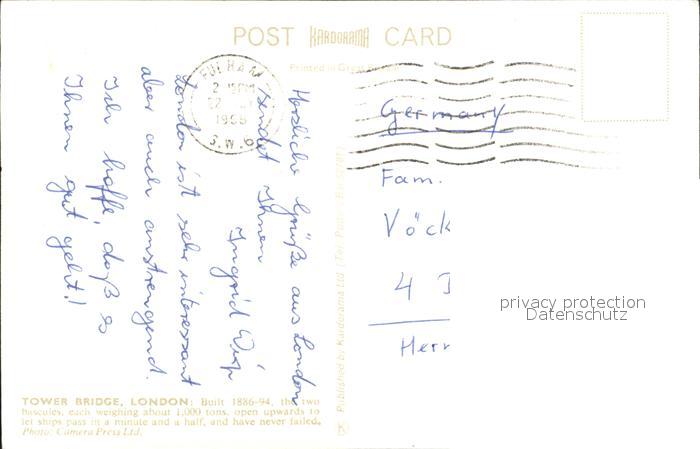 POST KARDORAMA CARD
Printed in Great
FULHAM
2 15PM
S.W.6
Germany
Fam.
Vöck
4
Herr
Herzliche Grüße aus London
sendet Ihnen
Ingrid
London ist sehr interessant
aber auch anstrengend.
Ich hoffe, daß es
Ihnen gut geht!
Published by Kardorama Ltd
privacy protection
Datenschutz
TOWER BRIDGE, LONDON: Built 1886-94, the two
bascules, each weighing about 1,000 tons, open upwards to
let ships pass in a minute and a half, and have never failed.
Photo: Camera Press Ltd.
K